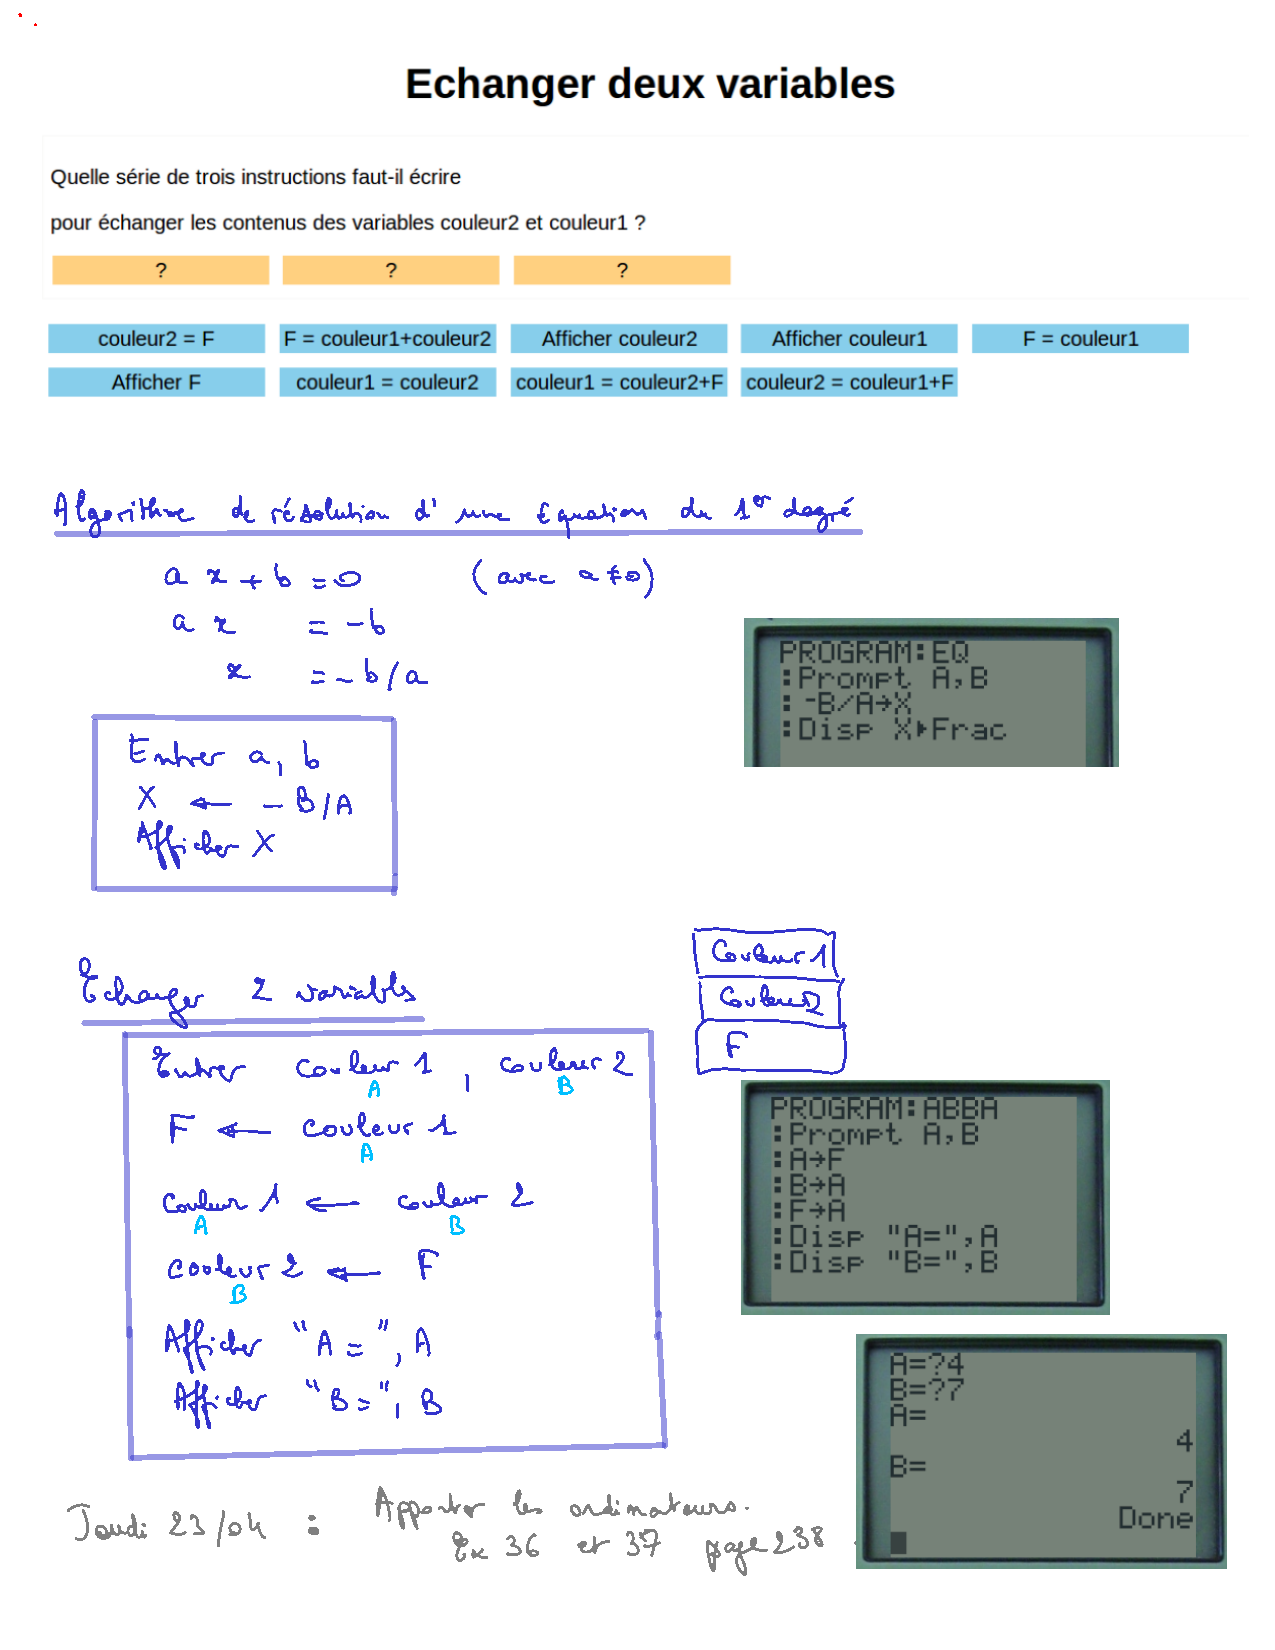 Echanger deux variables
Quelle série de trois instructions faut-il écrire
pour échanger les contenus des variables couleur2 et couleur1 ?
? ? ?
couleur2 = F F = couleur1+couleur2 Afficher couleur2 Afficher couleur1 F = couleur1
Afficher F couleur1 = couleur2 couleur1 = couleur2+F couleur2 = couleur1+F
Algorithme de résolution d'une Equation du 1er degré
a x + b = 0 (avec a ≠ 0)
a x = -b
x = -b/a
PROGRAM:EQ
:Prompt A,B
:-B/A→X
:Disp X▶Frac
Entrer a, b
X ← - B/A
Afficher X
Echanger 2 variables
Couleur 1
Couleur 2
F
Entrer couleur 1, couleur 2
A B
F ← couleur 1
A
couleur 1 ← couleur 2
A B
couleur 2 ← F
B
Afficher "A=", A
Afficher "B=", B
PROGRAM:ABBA
:Prompt A,B
:A→F
:B→A
:F→A
:Disp "A=",A
:Disp "B=",B
A=?4
B=?7
A=
4
B=
7
Done
Jeudi 23/04 : Apporter les ordinateurs.
Ex 36 et 37 page 238